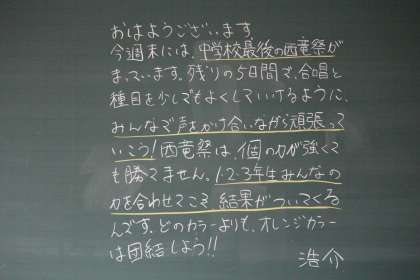 おはようございます。
今週末には、中学校最後の西竜祭が
まっています。残りの5日間で、合唱と
種目を少しでもよくしていけるように、
みんなで声をかけ合いながら頑張って
いこう!西竜祭は、個の力が強くて
も勝てません。1・2・3年生みんなの
力を合わせてこそ結果がついてくる
んです。どのカラーよりも、オレンジカラー
は団結しよう!!
浩介